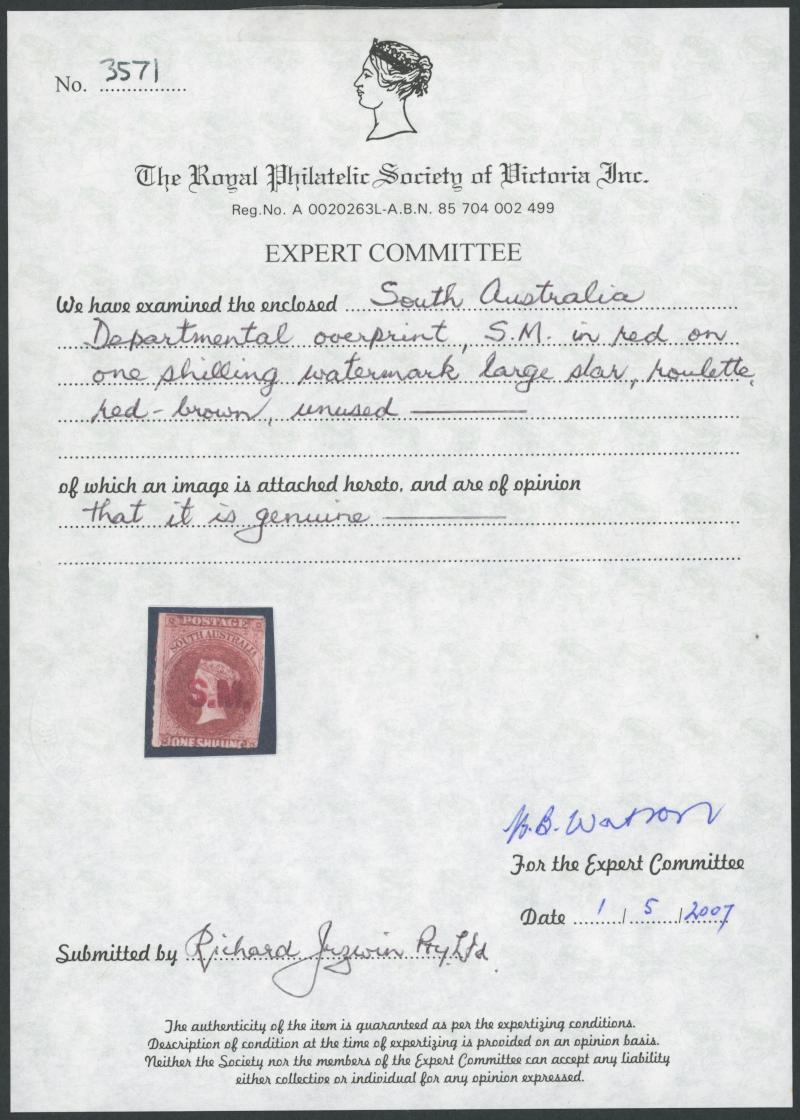 No. 3571
The Royal Philatelic Society of Victoria Inc.
Reg.No. A 0020263L-A.B.N. 85 704 002 499
EXPERT COMMITTEE
We have examined the enclosed South Australia
Departmental overprint, S.M. in red on
one shilling watermark large star, roulette,
red-brown, unused
of which an image is attached hereto, and are of opinion
that it is genuine
POSTAGE
SOUTH AUSTRALIA
S.M.
ONE SHILLING
B. Watson
For the Expert Committee
Date 1/5/2007
Submitted by Richard Juzwin Pty Ltd
The authenticity of the item is guaranteed as per the expertizing conditions.
Description of condition at the time of expertizing is provided on an opinion basis.
Neither the Society nor the members of the Expert Committee can accept any liability
either collective or individual for any opinion expressed.